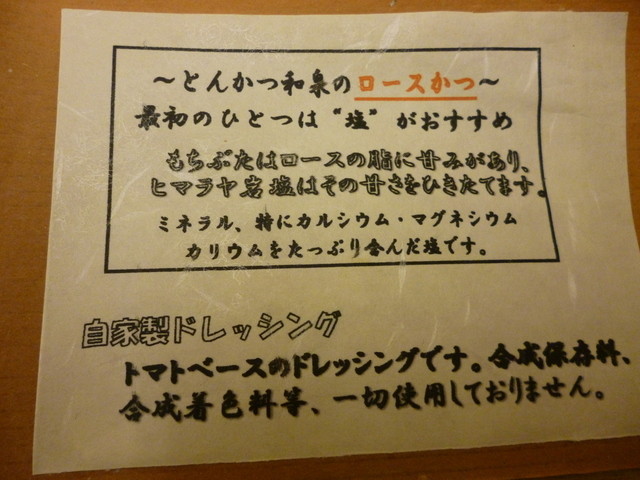 ～とんかつ和泉のロースかつ～
最初のひとつは“塩”がおすすめ
もちぶたはロースの脂に甘みがあり、
ヒマラヤ岩塩はその甘さをひきたてます。
ミネラル、特にカルシウム・マグネシウム
カリウムをたっぷり含んだ塩です。
自家製ドレッシング
トマトベースのドレッシングです。合成保存料、
合成着色料等、一切使用しておりません。